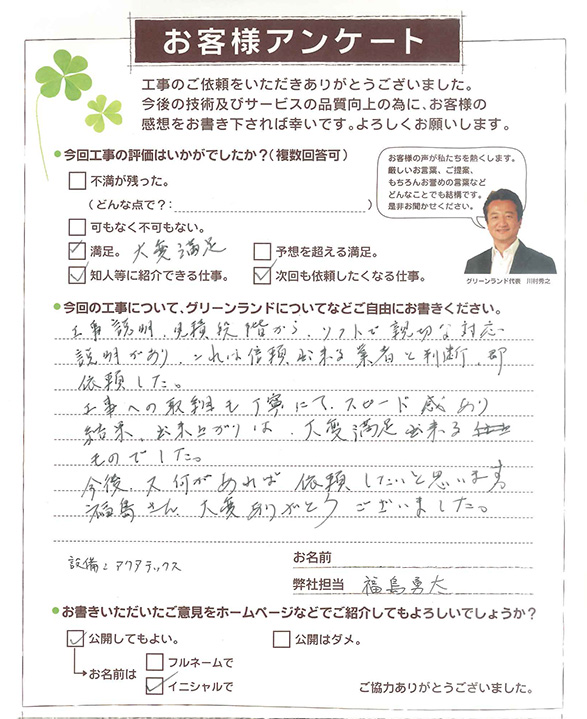 お客様アンケート
工事のご依頼をいただきありがとうございました。
今後の技術及びサービスの品質向上の為に、お客様の
感想をお書き下されば幸いです。よろしくお願いします。
今回工事の評価はいかがでしたか?(複数回答可)
不満が残った。
(どんな点で?: )
可もなく不可もない。
満足。 大変満足
予想を超える満足。
知人等に紹介できる仕事。
次回も依頼したくなる仕事。
お客様の声が私たちを熱くします。
厳しいお言葉、ご提案、
もちろんお誉めの言葉など
どんなことでも結構です。
是非お聞かせください。
グリーンランド代表 川村秀之
今回の工事について、グリーンランドについてなどご自由にお書きください。
工事説明、見積段階から、ソフトで親切な対応
説明があり、これは信頼出来る業者と判断、即
依頼した。
工事への取組も丁寧にて、スピード感あり
結果、出来上がりは、大変満足出来る
ものでした。
今後、又何があれば依頼したいと思います。
福島さん、大変ありがとうございました。
設備:アクアテックス
お名前
弊社担当 福島勇太
お書きいただいたご意見をホームページなどでご紹介してもよろしいでしょうか?
公開してもよい。
公開はダメ。
お名前は
フルネームで
イニシャルで
ご協力ありがとうございました。